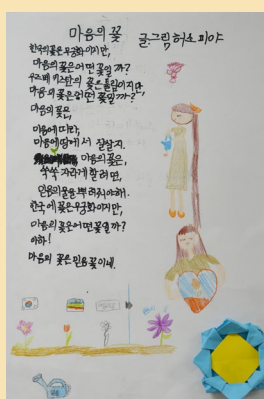 마음의 꽃 글·그림 허소피아
한국의 꽃은 무궁화이지만,
마음의 꽃은 어떤 꽃일까?
우즈베키스탄의 꽃은 튤립이지만,
마음의 꽃은 어떤 꽃일까?
마음의 꽃은,
마음에 따라,
마음에 땅에서 잘살지.
마음의 꽃은,
쑥쑥 자라게 할려면,
믿음의 물을 뿌려줘야해.
한국에 꽃은 무궁화이지만,
마음의 꽃은 어떤 꽃일까?
아하!
마음의 꽃은 믿음 꽃이네.